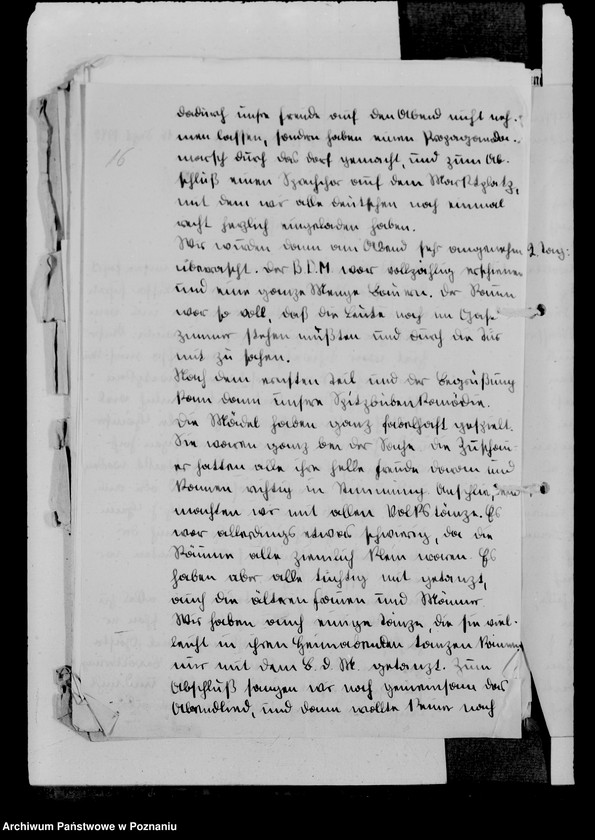 16
dadurch unsre Freude auf den Abend nicht neh-
men lassen, sondern haben einen Propaganda-
marsch durch das Dorf gemacht, und zum Ab-
schluß einen Sprechchor auf dem Marktplatz,
mit dem wir alle Deutschen noch einmal
recht herzlich eingeladen haben.
Wir wurden dann am Abend sehr angenehm
überrascht. Der B.D.M. war vollzählig erschienen
und eine ganze Menge Bauern. Der Raum
war so voll, daß die Leute noch im Gast-
zimmer stehen mußten und durch die Tür
mit zu sahen.
Nach dem ernsten Teil und der Begrüßung
kam dann unsere Spitzbubenkomödie.
Die Mädel haben ganz fabelhaft gespielt.
Sie waren ganz bei der Sache. Die Zuschau-
er hatten alle ihre helle Freude daran und
kamen richtig in Stimmung. Anschließend
machten wir mit allen Volkstänze. Es
war allerdings etwas schwierig, da die
Räume alle ziemlich klein waren. Es
haben aber alle tüchtig mit getanzt,
auch die älteren Frauen und Männer.
Wir haben auch einige Tänze, die sie viel-
leicht in ihren Heimabenden tanzen können
nur mit dem B.d.M. getanzt. Zum
Abschluß sangen wir noch gemeinsam das
Abendlied, und dann wollte keiner nach
Archiwum Państwowe w Poznaniu